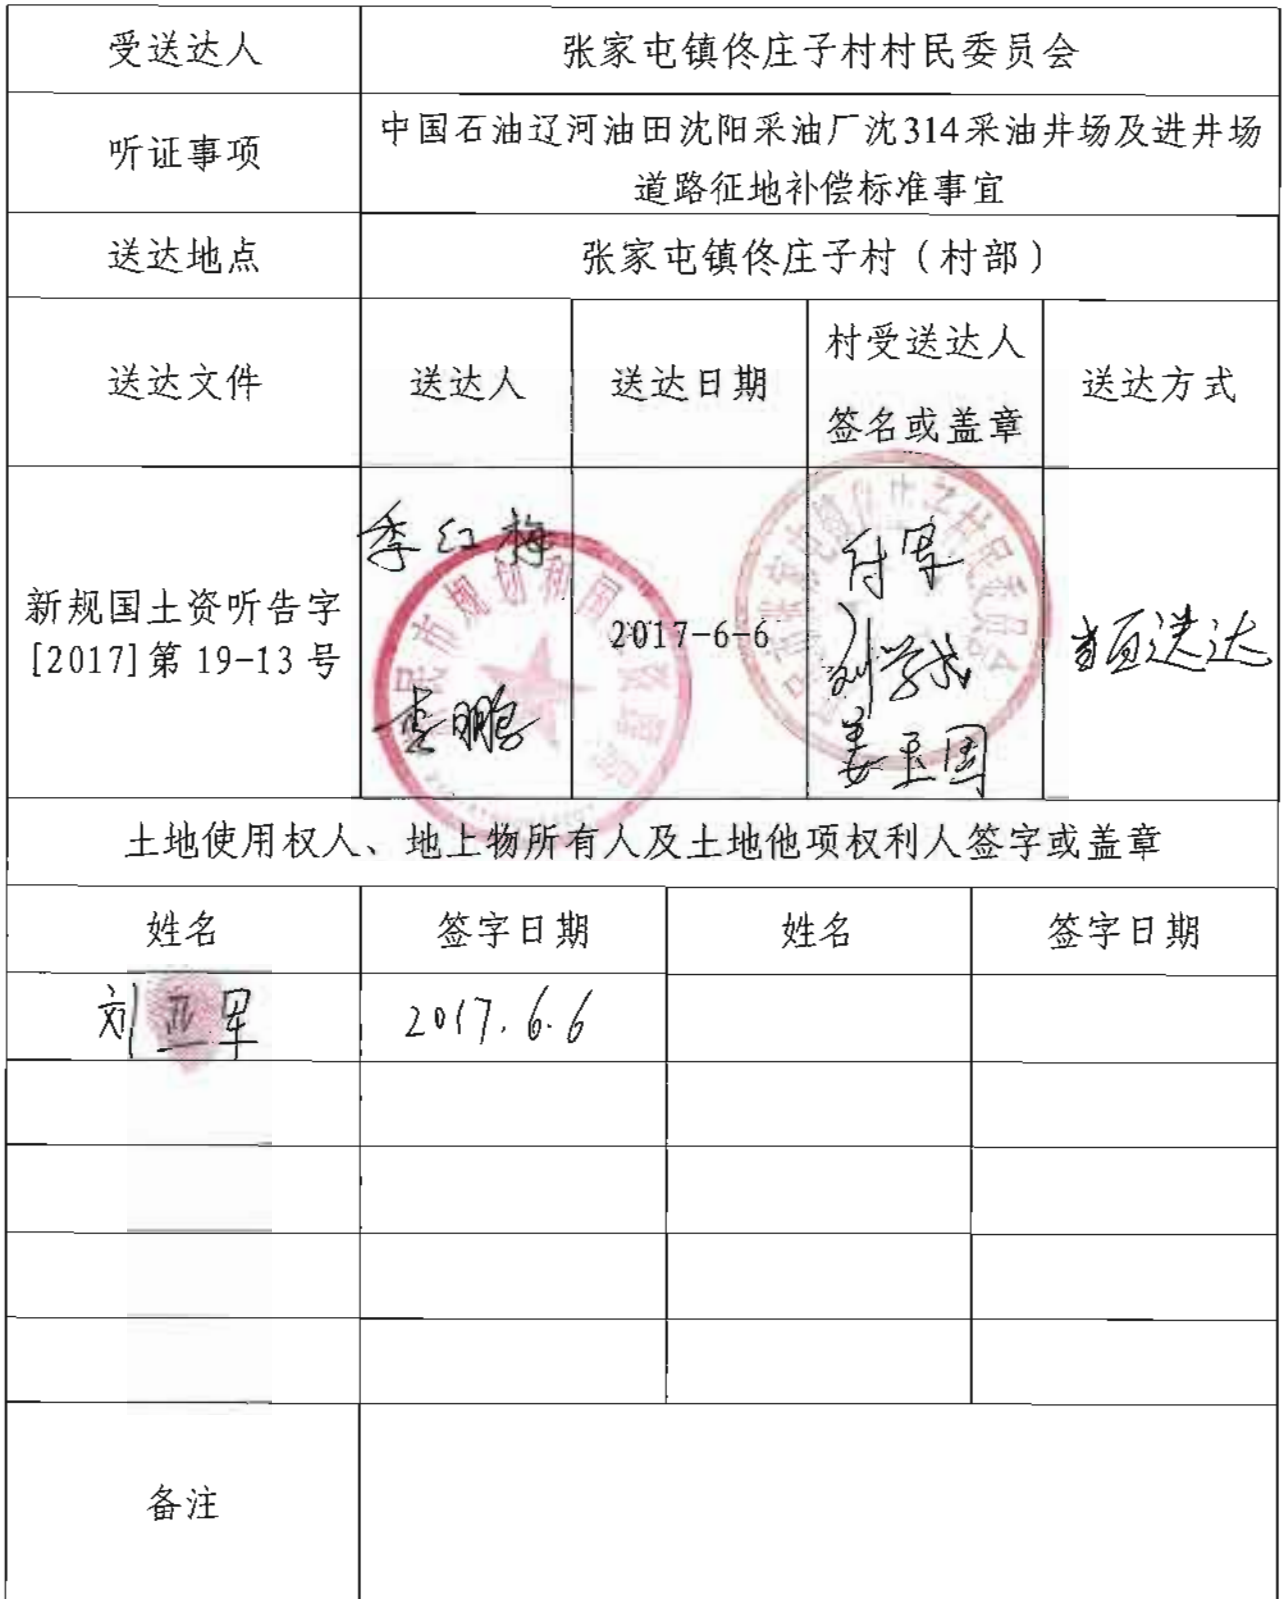 受送达人
张家屯镇佟庄子村村民委员会
听证事项
中国石油辽河油田沈阳采油厂沈314采油井场及进井场
道路征地补偿标准事宜
送达地点
张家屯镇佟庄子村（村部）
送达文件
送达人
送达日期
村受送达人
签名或盖章
送达方式
新规国土资听告字
[2017]第 19-13 号
季红梅
李鹏
2017-6-6
付军
姜玉国
当面送达
土地使用权人、地上物所有人及土地他项权利人签字或盖章
姓名
签字日期
姓名
签字日期
刘亚军
2017.6.6
备注